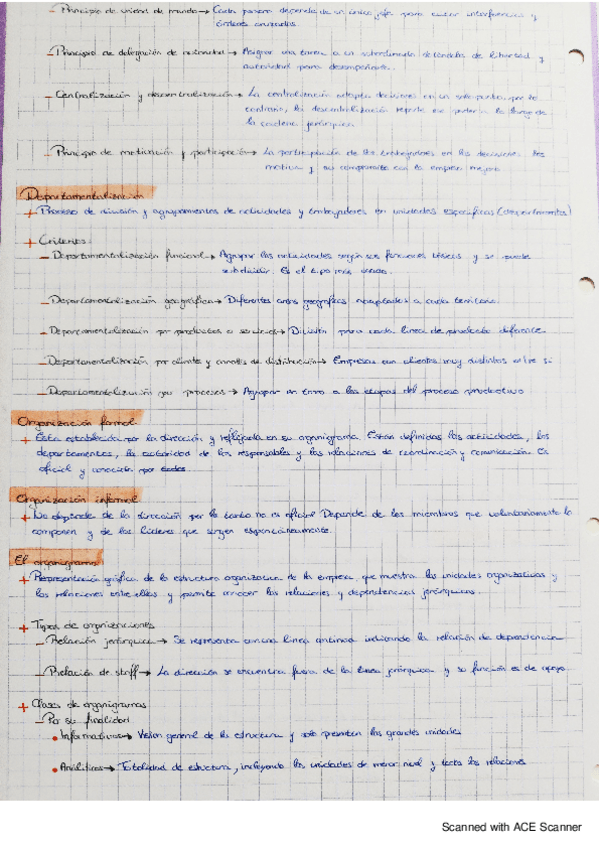 – Principio de unidad de mando → Cada persona dependa de un único jefe para evitar interferencias y
órdenes cruzadas.
– Principio de delegación de autoridad → Asignar una tarea a un subordinado dotándolo de libertad y
autoridad para desempeñarla.
– Centralización y descentralización → La centralización adopta decisiones en un solo punto, por lo
contrario, la descentralización reparte ese poder a lo largo de
la cadena jerárquica
– Principio de motivación y participación → La participación de los trabajadores en las decisiones les
motiva y su compromiso con la empresa mejora.
Departamentalización
+ Proceso de división y agrupamientos de actividades y trabajadores en unidades específicas (departamentos)
+ Criterios:
– Departamentalización funcional → Agrupar las actividades según sus funciones básicas y se puede
subdividir. Es el tipo más usado.
– Departamentalización geográfica → Diferentes áreas geográficas adaptadas a cada territorio.
– Departamentalización por productos o servicios → División para cada línea de producto diferente.
– Departamentalización por cliente y canales de distribución → Empresas con clientes muy distintos entre sí
– Departamentalización por procesos → Agrupar en torno a las etapas del proceso productivo
Organización formal
+ Está establecida por la dirección y reflejada en su organigrama. Están definidas las actividades, los
departamentos, la autoridad de los responsables y las relaciones de coordinación y comunicación. Es
oficial y conocida por todos.
Organización informal
+ No depende de la dirección por lo tanto no es oficial. Depende de los miembros que voluntariamente la
componen y de los líderes que surgen espontáneamente.
El organigrama
+ Representación gráfica de la estructura organizativa de la empresa que muestra las unidades organizativas y
las relaciones entre ellas y permite conocer las relaciones y dependencias jerárquicas.
+ Tipos de organizaciones
– Relación jerárquica → Se representa con una línea continua indicando la relación de dependencia
– Relación de staff → La dirección se encuentra fuera de la línea jerárquica y su función es de apoyo
+ Clases de organigramas
– Por su finalidad
• Informativos → Visión general de la estructura y solo presentan las grandes unidades
• Analíticos → Totalidad de estructura, incluyendo las unidades de menor nivel y todas las relaciones
Scanned with ACE Scanner